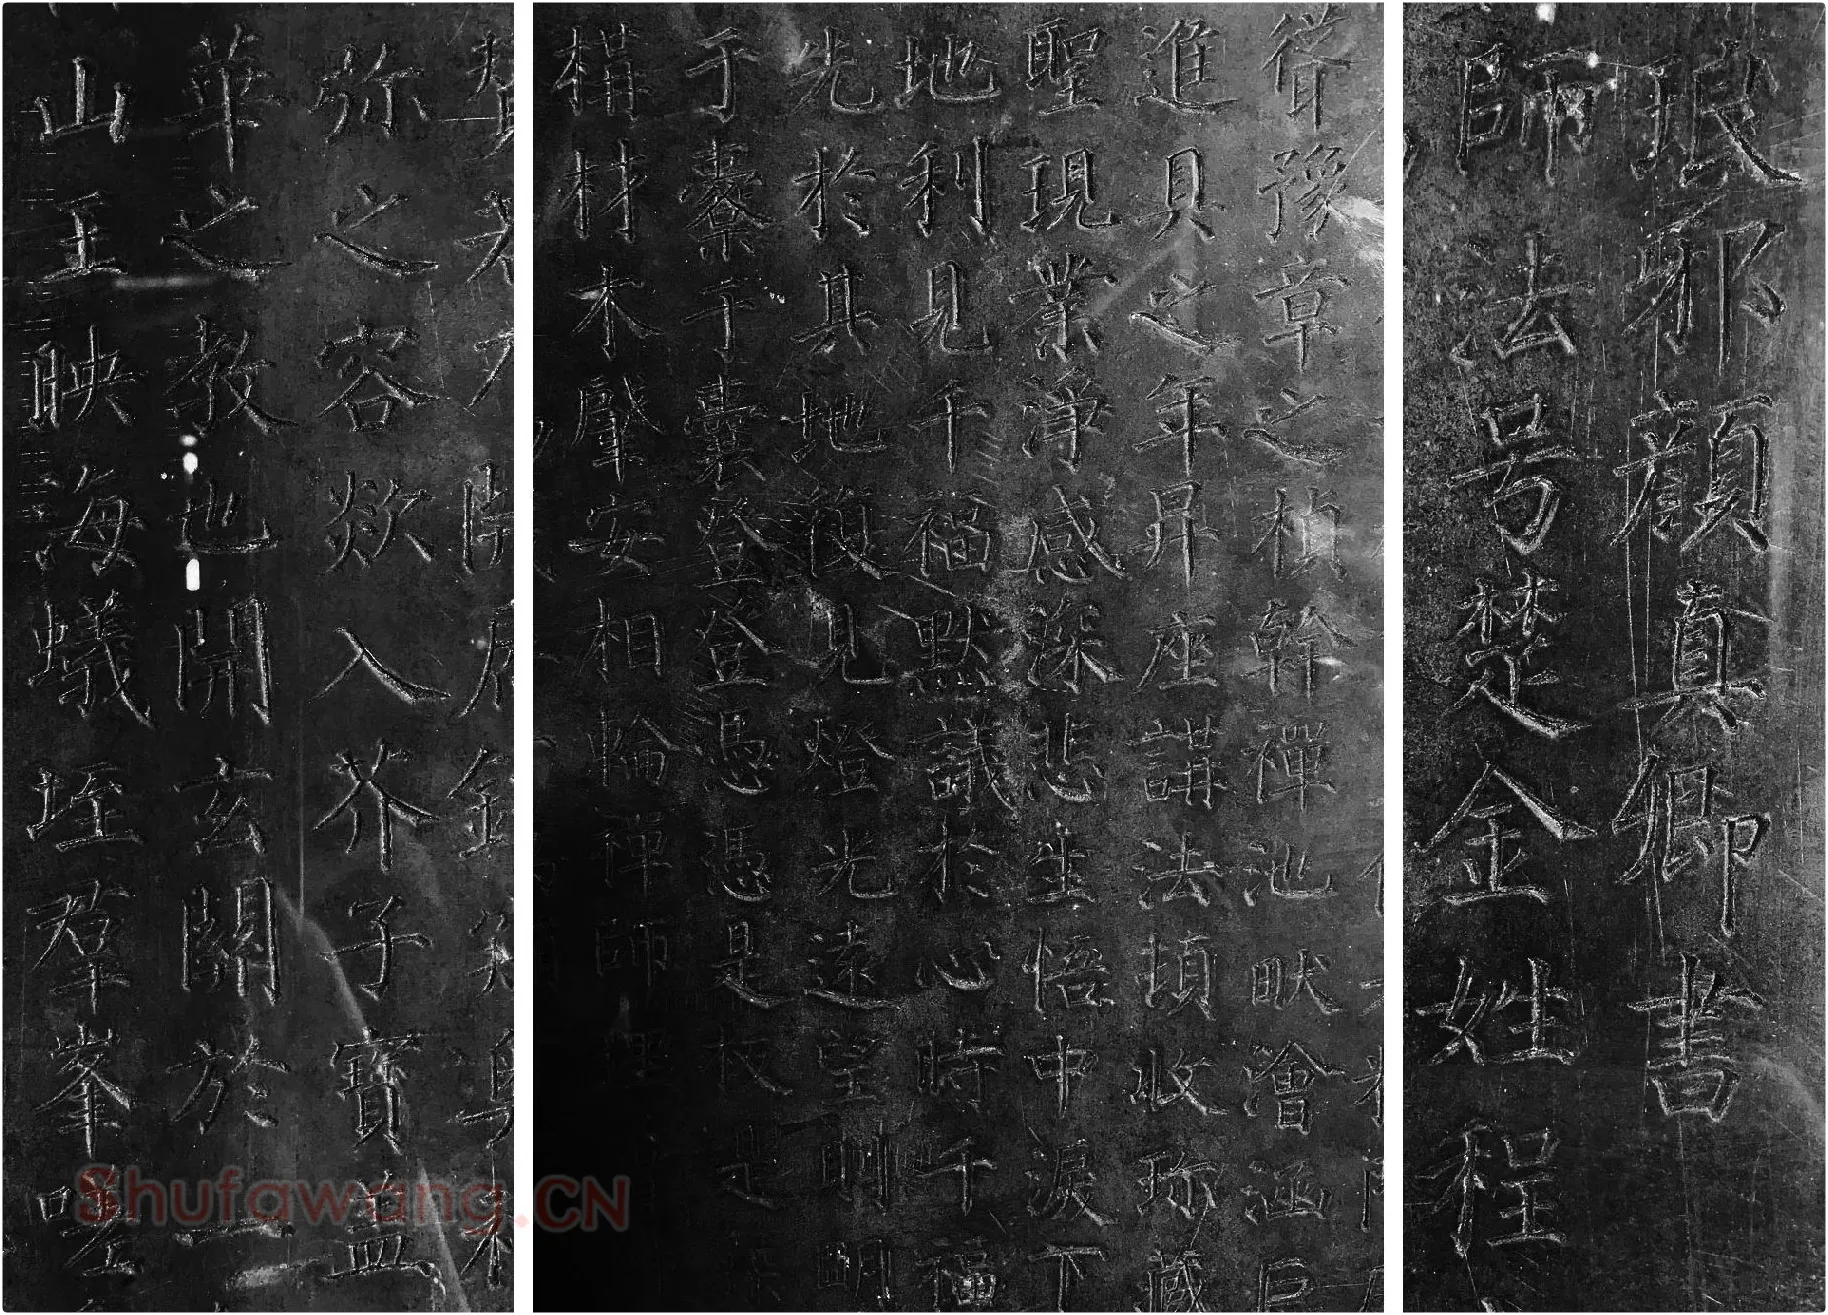 琅邪顏真卿書
師法号楚金姓程
聳豫章之楨幹禪池畎澮涵巨
進具之年昇座講法頓收珎藏
聖現業淨感深悲生悟中淚下
地利見千福默識於心時千福
先於其地復見燈光遠望則明
于橐于囊登登憑憑是板是
構材木肇安相輪禪師理
弥之容欻入芥子寶蓋
華之教也開玄關於一
山王映海蟻垤羣峯嗟
Shufawang.CN